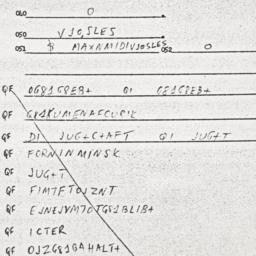 040 0
050 VJOSLES
051 $ MAXNMIDIVJOSLES 052 0
QE 0G81G8EB+ QI G81G8EB+
QF G81KUMENAFCUCIL
QF DI JUG+C+AFT QI JUG+T
QF FCRNINMINSK
QF JUG+T
QF FIMTFTOJZNT
QF EJNEJVM7OTG81BLIB+
QF ICTER
QF OJZG81GAHALT+